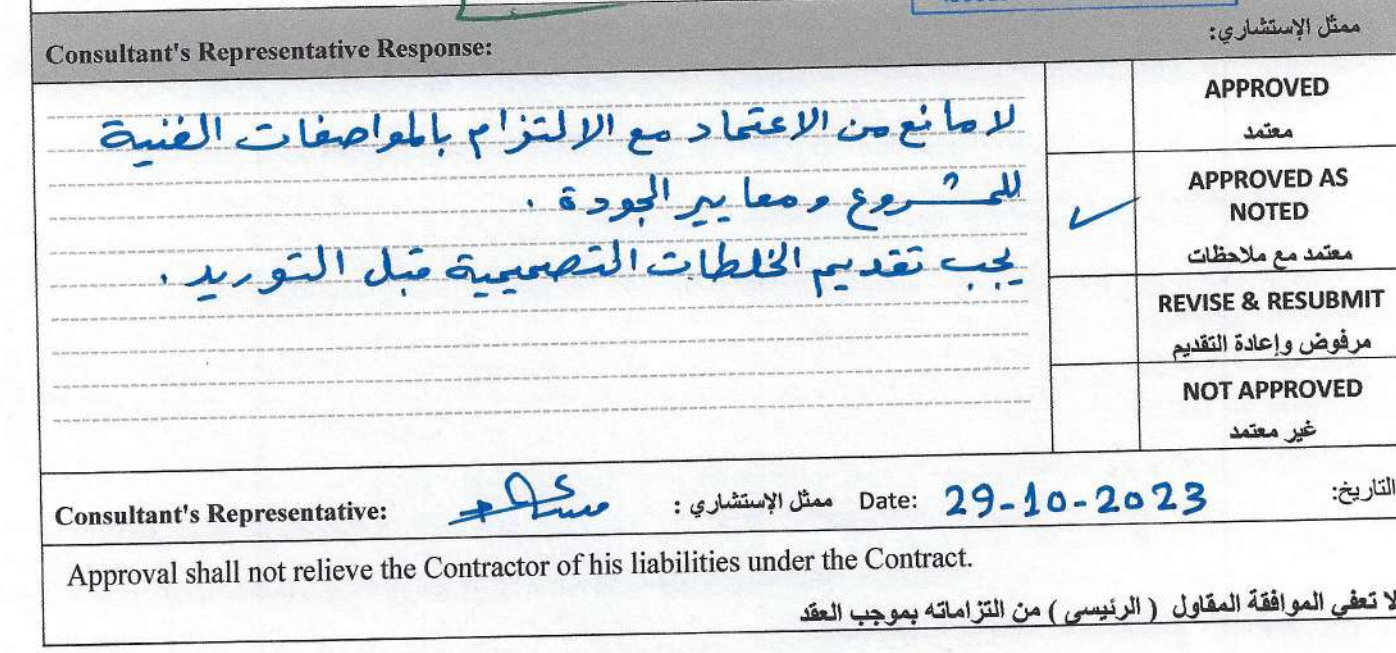 Consultant's Representative Response:
ممثل الإستشاري:
لا مانع من الاعتماد مع الالتزام بالمواصفات الفنية
للمشروع ومعايير الجودة .
يجب تقديم الخلطات التصميمية قبل التوريد .
APPROVED
معتمد
✓
APPROVED AS
NOTED
معتمد مع ملاحظات
REVISE & RESUBMIT
مرفوض وإعادة التقديم
NOT APPROVED
غير معتمد
Consultant's Representative: ممثل الإستشاري : Date: 29-10-2023 التاريخ:
Approval shall not relieve the Contractor of his liabilities under the Contract.
لا تعفي الموافقة المقاول ( الرئيسي ) من التزاماته بموجب العقد